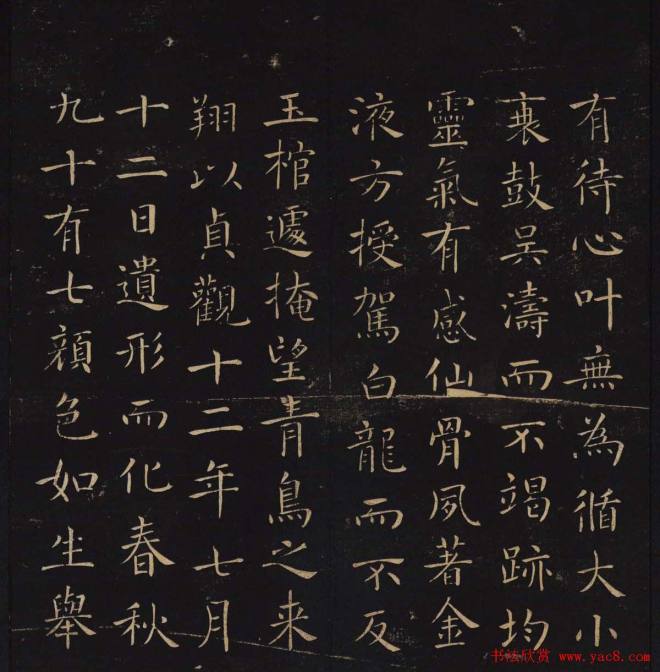 有待心叶無為循大小
鼓吴濤而不竭跡均
靈氣有感仙骨夙著金
液方授駕白龍而不反
玉棺遽掩望青鳥之来
翔以貞觀十二年七月
十二日遺形而化春秋
九十有七顏色如生舉
书法欣赏 www.yac8.com